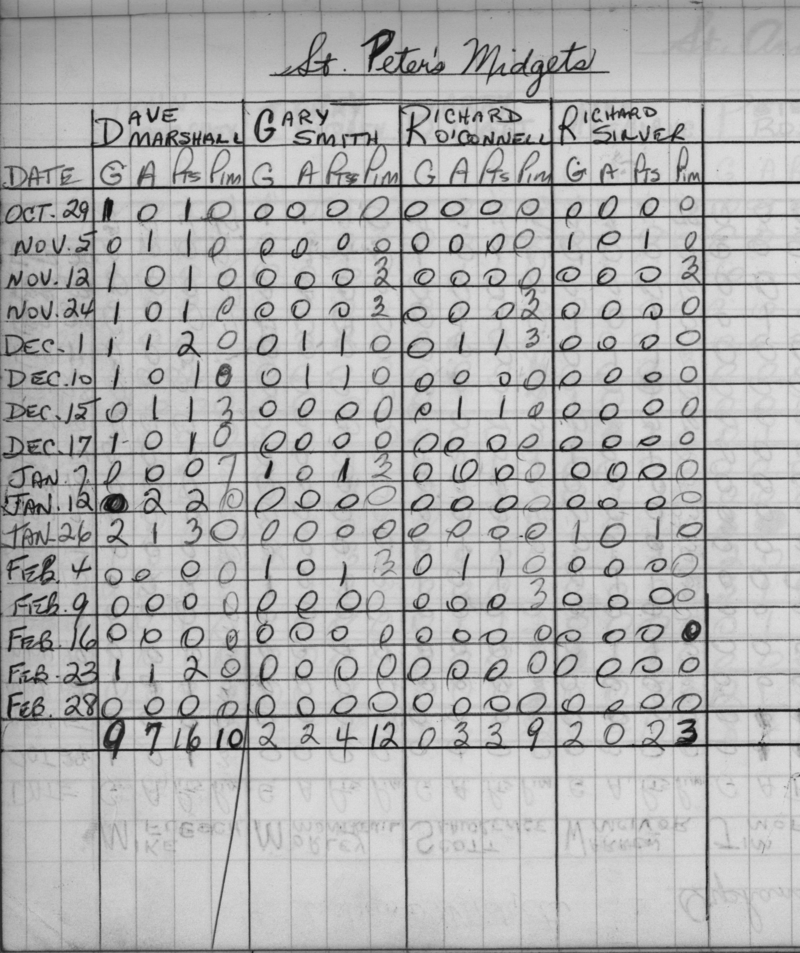 St. Peter's Midgets
DAVE MARSHALL GARY SMITH RICHARD O'CONNELL RICHARD SILVER
DATE G A Pts Pim G A Pts Pim G A Pts Pim G A Pts Pim
OCT. 29 1 0 1 0 0 0 0 0 0 0 0 0 0 0 0 0
NOV. 5 0 1 1 0 0 0 0 0 0 0 0 0 1 0 1 0
NOV. 12 1 0 1 0 0 0 0 3 0 0 0 0 0 0 0 3
NOV. 24 1 0 1 0 0 0 0 3 0 0 0 3 0 0 0 0
DEC. 1 1 1 2 0 0 1 1 0 0 1 1 3 0 0 0 0
DEC. 10 1 0 1 0 0 1 1 0 0 0 0 0 0 0 0 0
DEC. 15 0 1 1 3 0 0 0 0 0 1 1 0 0 0 0 0
DEC. 17 1 0 1 0 0 0 0 0 0 0 0 0 0 0 0 0
JAN. 7 0 0 0 7 1 0 1 3 0 0 0 0 0 0 0 0
JAN. 12 0 2 2 0 0 0 0 0 0 0 0 0 0 0 0 0
JAN. 26 2 1 3 0 0 0 0 0 0 0 0 0 1 0 1 0
FEB. 4 0 0 0 0 1 0 1 3 0 1 1 0 0 0 0 0
FEB. 9 0 0 0 0 0 0 0 0 0 0 0 3 0 0 0 0
FEB. 16 0 0 0 0 0 0 0 0 0 0 0 0 0 0 0 0
FEB. 23 1 1 2 0 0 0 0 0 0 0 0 0 0 0 0 0
FEB. 28 0 0 0 0 0 0 0 0 0 0 0 0 0 0 0 0
9 7 16 10 2 2 4 12 0 3 3 9 2 0 2 3